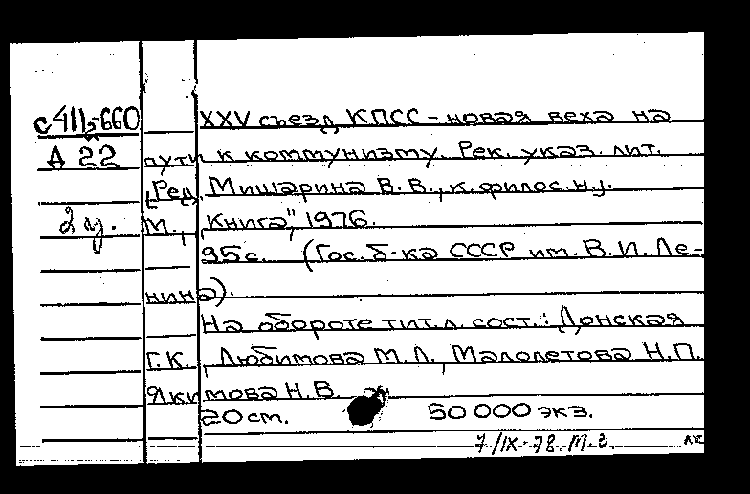 с411-660 XXV съезд КПСС - новая веха на
А 22 пути к коммунизму. Рек. указ. лит.
[Ред. Мишарина В.В., к.филос.н.].
2 у. М., „Книга", 1976.
95 с. (Гос. б-ка СССР им. В.И. Ле-
нина).
На обороте тит.л. сост.: Донская
Г.К., Любимова М.Л., Малолетова Н.П.
Якимова Н.В.
20 см. 50 000 экз.
7/IX-78. М-3.